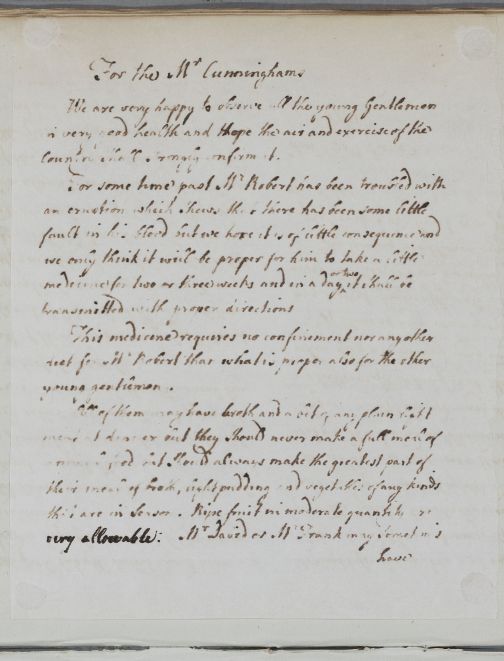 For the Mr Cunninghams
We are very happy to observe all the young Gentlemen
in very good health and hope the air and exercise of the
Country shall strongly confirm it.
For some time past Mr Robert has been troubled with
an eruption which shews that there has been some little
fault in his blood but we hope it is of little consequence and
we only think it will be proper for him to take a little
medicine for two or three weeks and in a day or two it shall be
transmitted with proper directions
This medicine requires no confinement nor any other
diet for Mr Robert than what is proper also for the other
young gentlemen.
All of them may have broth and a bit of any plain light
meat at dinner but they should never make a full meal of
animal food but should always make the greatest part of
their meal of broth, light pudding and vegetables of any kinds
that are in season. Ripe fruit in moderate quantity are
very allowable. Mr David or Mr Frank may sometimes
have